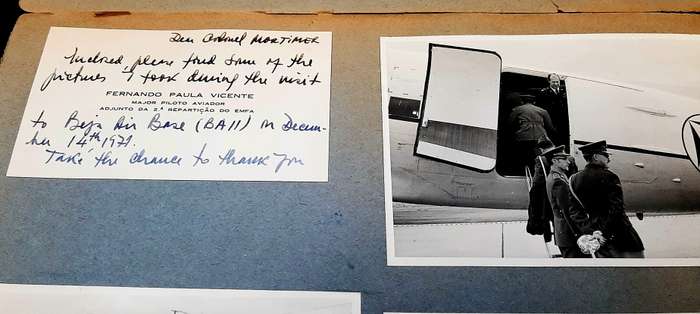 Dear Colonel MORTIMER
Inclosed, please find some of the
pictures I took during the visit
FERNANDO PAULA VICENTE
MAJOR PILOTO AVIADOR
ADJUNTO DA 2.ª REPARTIÇÃO DO EMFA
to Beja Air Base (BA11) on Decem-
ber 14th 1971.
Take the chance to thank you